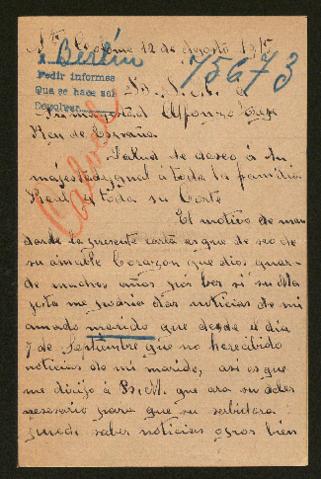 12 de Agosto 1915
Berlín
75673
Pedir informes
Que se hace sol
Devolver
Su majestad Alfonso
Rey de España
Salud le deseo á Su
majestad ygual á toda la familia
Real y toda su Corte
El motivo de man
darle la presente carta es que deseo de
su amable Corazon que dios guar-
de muchos años por ber si su Ma
jesta me podria dar noticias de mi
amado marido que desde el dia
7 de Septiembre que no herecibido
noticias de mi marido, asi es que
me dirijo á S.M. que ara su deber
nesesario para que su serbidora
puede saber noticias ogros bien